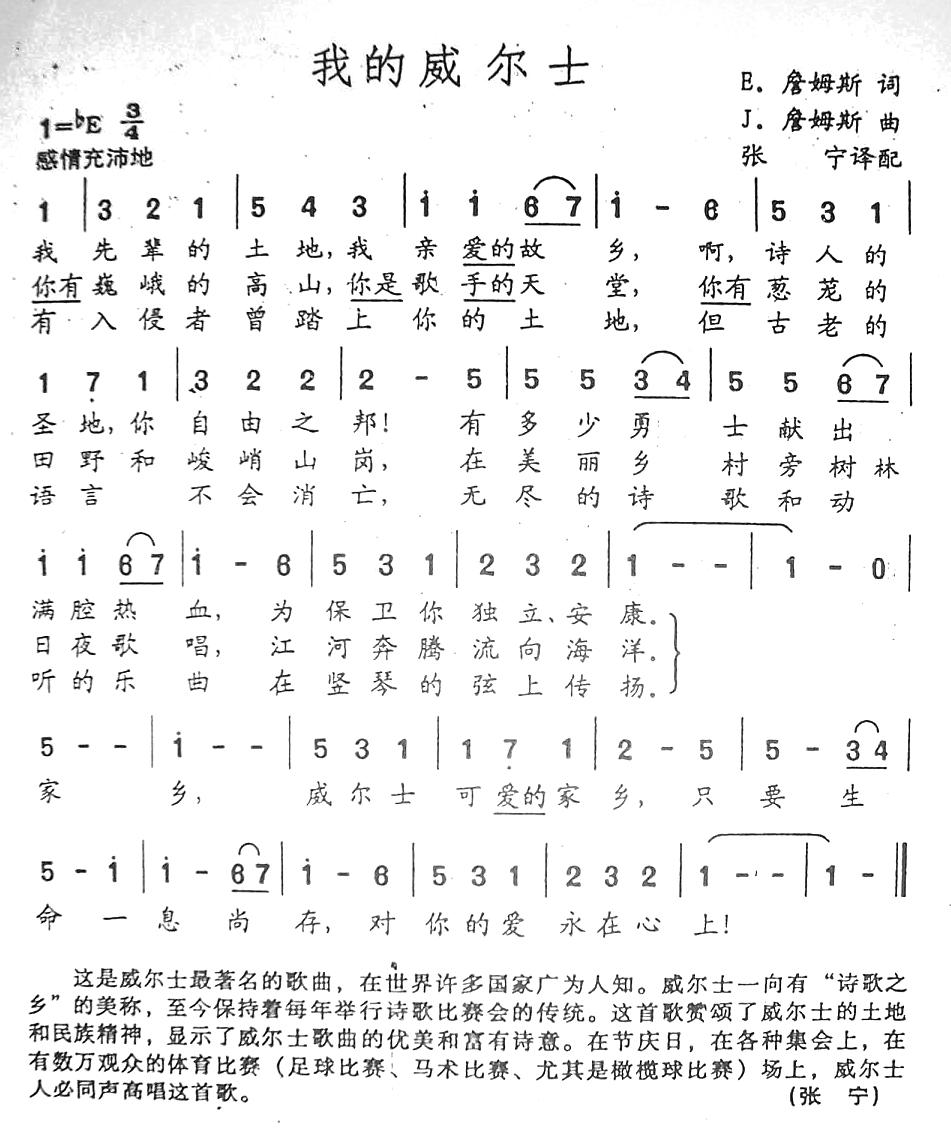 我的威尔士
E. 詹姆斯 词
1=♭E 3/4
J. 詹姆斯 曲
感情充沛地
张 宁译配
1 | 3 2 1 | 5 4 3 | i i 6 7 | i - 6 | 5 3 1 |
我 先 辈 的 土 地, 我 亲 爱的 故 乡, 啊, 诗 人 的
你有 巍 峨 的 高 山, 你是 歌 手的 天 堂, 你有 葱 茏 的
有 入 侵 者 曾 踏 上 你 的 土 地, 但 古 老 的
1 7̣ 1 | 3 2 2 | 2 - 5 | 5 5 3 4 | 5 5 6 7 |
圣 地, 你 自 由 之 邦! 有 多 少 勇 士 献 出
田 野 和 峻 峭 山 岗, 在 美 丽 乡 村 旁 树 林
语 言 不 会 消 亡, 无 尽 的 诗 歌 和 动
i i 6 7 | i - 6 | 5 3 1 | 2 3 2 | 1 - - | 1 - 0 |
满 腔 热 血, 为 保 卫 你 独 立、安 康.
日 夜 歌 唱, 江 河 奔 腾 流 向 海 洋.
听 的 乐 曲 在 竖 琴 的 弦 上 传 扬.
5 - - | i - - | 5 3 1 | 1 7̣ 1 | 2 - 5 | 5 - 3 4 |
家 乡, 威 尔 士 可 爱的 家 乡, 只 要 生
5 - i | i - 6 7 | i - 6 | 5 3 1 | 2 3 2 | 1 - - | 1 - ‖
命 一 息 尚 存, 对 你 的 爱 永 在 心 上!
这是威尔士最著名的歌曲，在世界许多国家广为人知。威尔士一向有“诗歌之
乡”的美称，至今保持着每年举行诗歌比赛会的传统。这首歌赞颂了威尔士的土地
和民族精神，显示了威尔士歌曲的优美和富有诗意。在节庆日，在各种集会上，在
有数万观众的体育比赛（足球比赛、马术比赛、尤其是橄榄球比赛）场上，威尔士
人必同声高唱这首歌。 (张 宁)